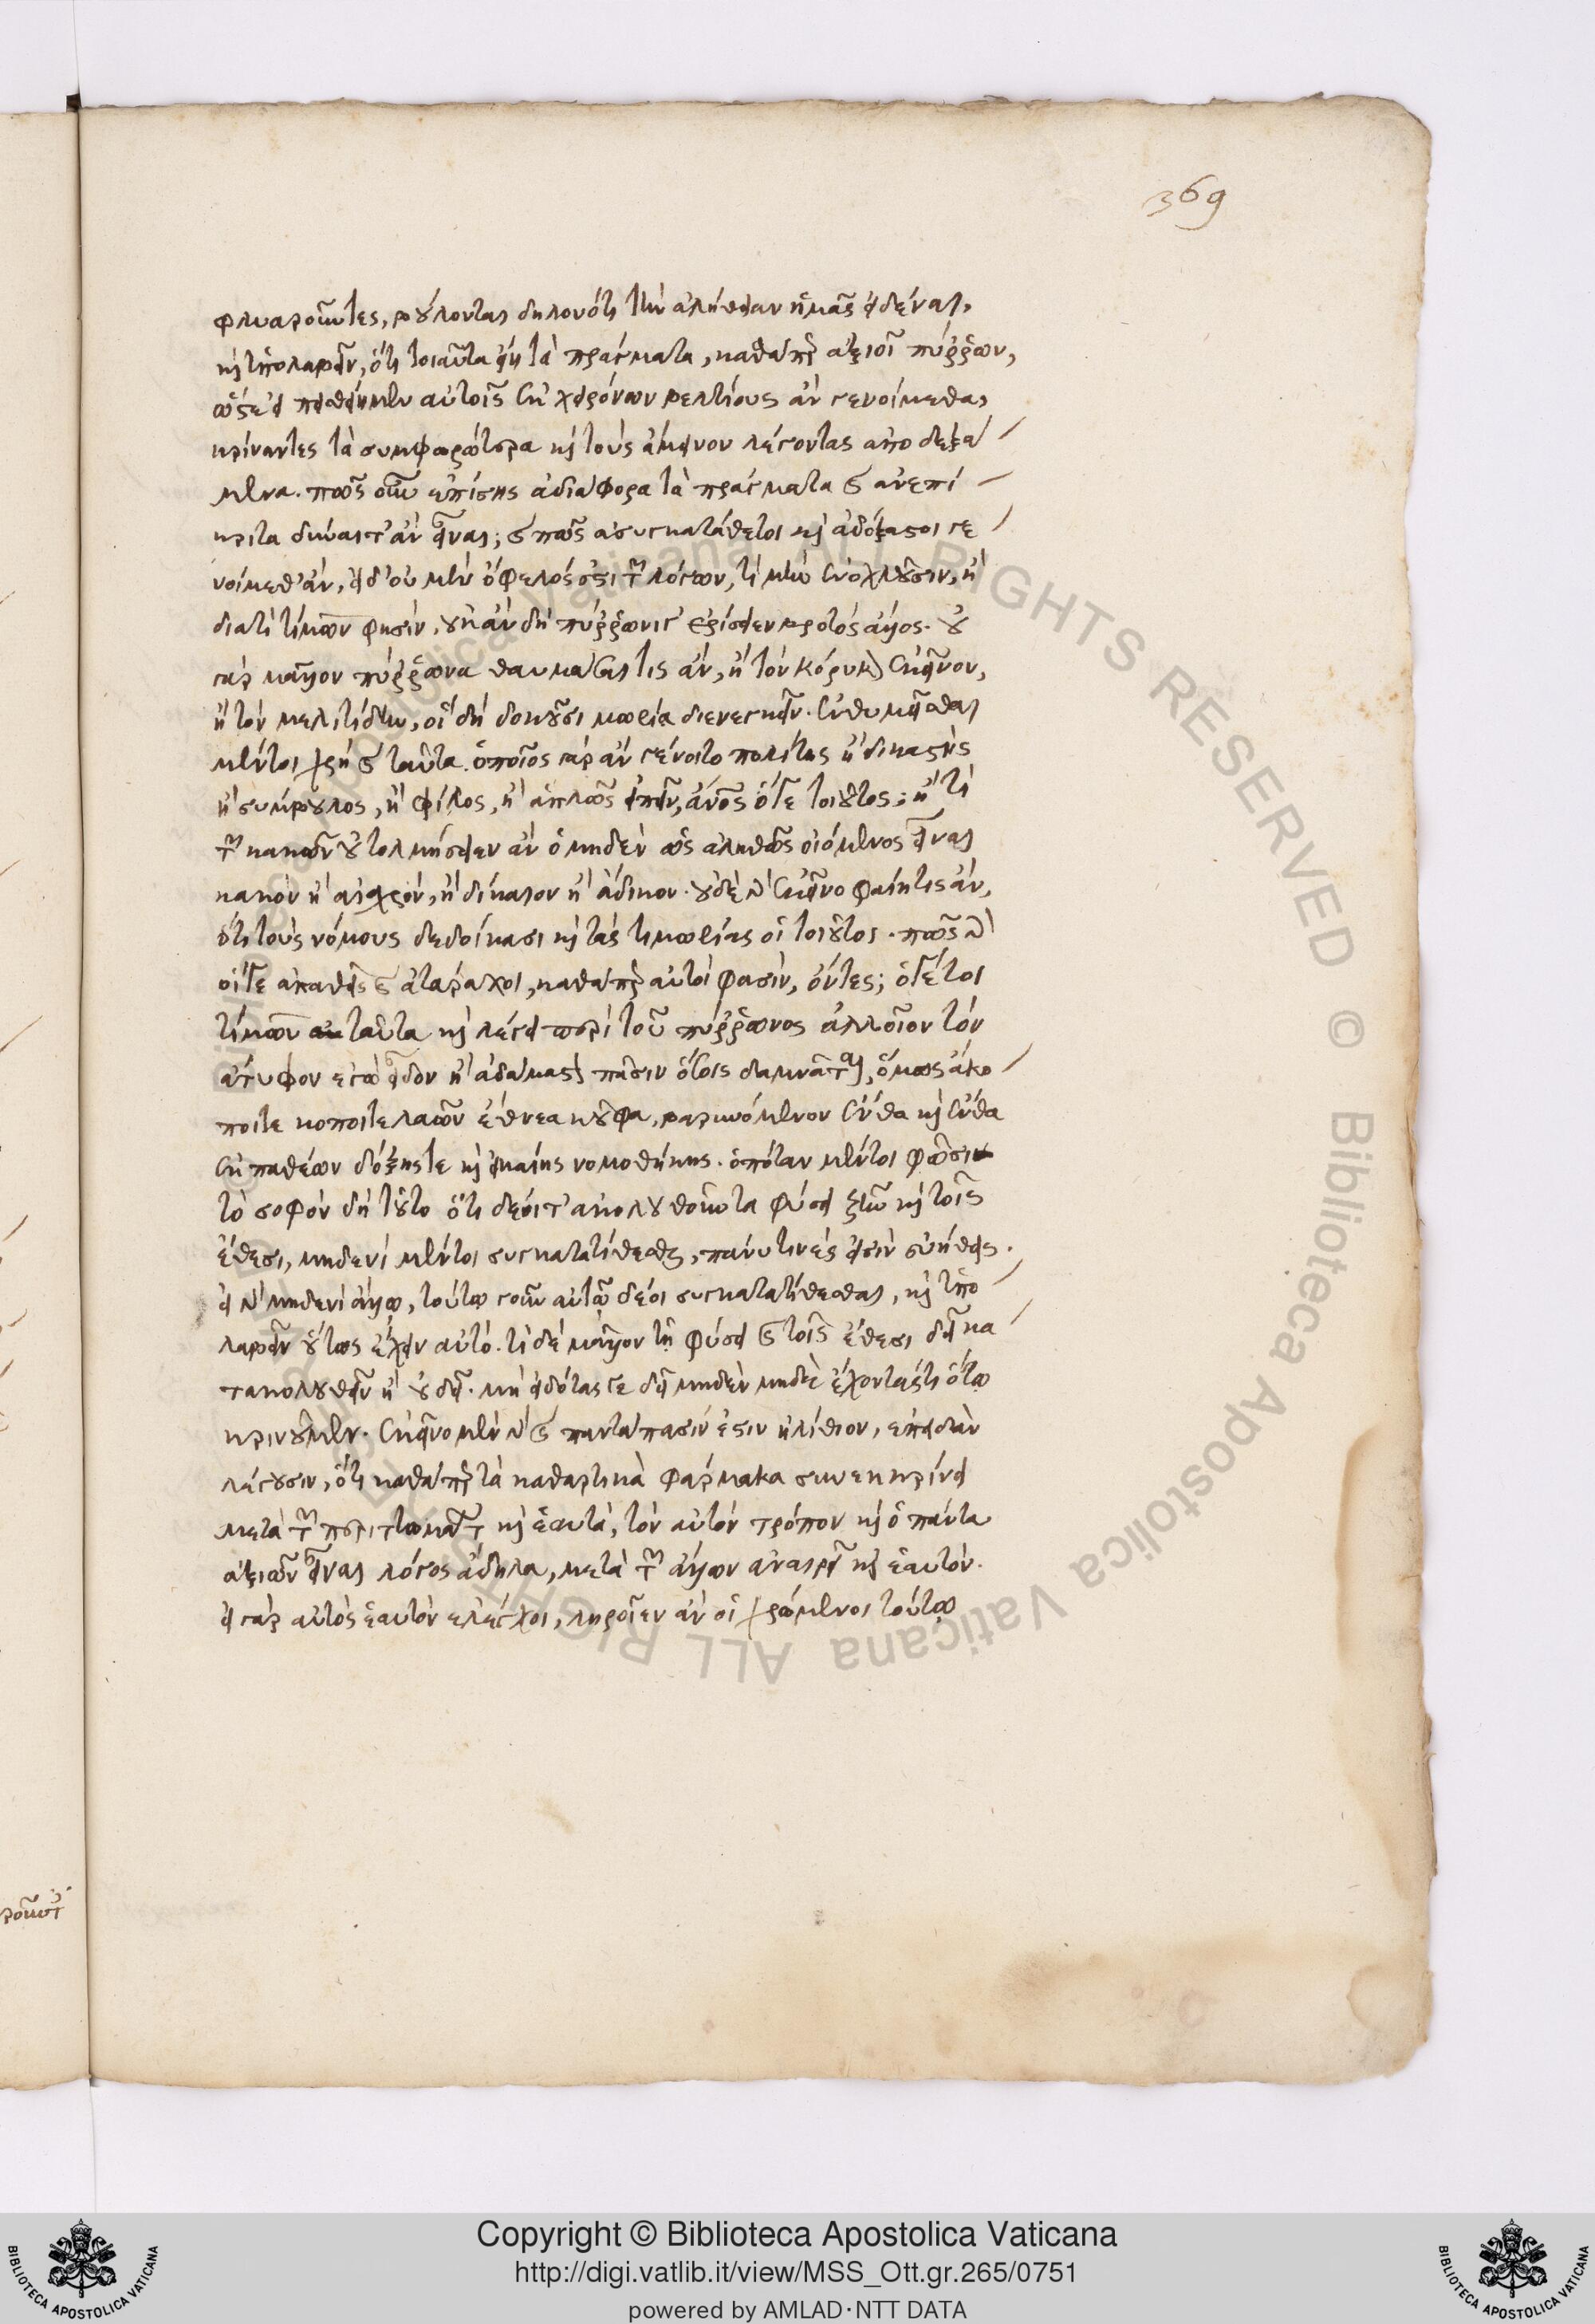 369
φλυαροῦντες, βούλονται δηλονότι τὴν ἀλήθειαν ἡμᾶς εἰδέναι,
καὶ ὑπολαβεῖν, ὅτι τοιαῦτα εἴη τὰ πράγματα, καθάπερ ἀξιοῖ πύρρων,
ὥστε εἰ πεισθείημεν αὐτοῖς ἐκ χειρόνων βελτίους ἂν γενοίμεθα,
κρίναντες τὰ συμφορώτερα καὶ τοὺς ἄμεινον λέγοντας ἀποδεξά
μενοι. πῶς οὖν ἐπίσης ἀδιάφορα τὰ πράγματα καὶ ἀνεπί
κριτα δύναιτ' ἂν εἶναι; καὶ πῶς ἀσυγκατάθετοι καὶ ἀδόξαστοι γε
νοίμεθ' ἄν, εἰ δ' οὐ μὲν ὄφελός ἐστι τῶν λόγων, τί μὴν ἐνοχλοῦσιν, ἢ
διατί τίμων φησίν, οὐκ ἂν δὴ πύρρωνί γ' ἐρίσειεν βροτὸς ἄλλος. οὐ
γὰρ μᾶλλον πύρρωνα θαυμάσαι τις ἄν, ἢ τὸν κόρυβον ἐκεῖνον,
ἢ τὸν μελιτίδην, οἳ δὴ δοκοῦσι μωρίᾳ διενεγκεῖν. ἐνθυμεῖσθαι
μέντοι χρὴ καὶ ταῦτα. ὁποῖος γὰρ ἂν γένοιτο πολίτης ἢ δικαστὴς
ἢ σύμβουλος, ἢ φίλος, ἢ ἁπλῶς εἰπεῖν, ἄνος ὅγε τοιοῦτος; ἢ τί
τῶν κακῶν οὐ τολμήσειεν ἂν ὁ μηδὲν ὡς ἀληθῶς οἰόμενος εἶναι
κακὸν ἢ αἰσχρόν, ἢ δίκαιον ἢ ἄδικον. οὐδὲ γὰρ ἐκεῖνο φαίη τις ἄν,
ὅτι τοὺς νόμους δεδοίκασι καὶ τὰς τιμωρίας οἱ τοιοῦτοι. πῶς γὰρ
οἵγε ἀπαθεῖς καὶ ἀτάραχοι, καθάπερ αὐτοί φασιν, ὄντες; ὅγέτοι
τίμων ταῦτα καὶ λέγει περὶ τοῦ πύρρωνος ἀλλ' οἷον τὸν
ἄτυφον ἐγὼ εἶδον ἢ ἀδάμαστ πᾶσιν ὅσοις δαμνᾶται, ὅμως ἄκο
ποιτε κοποιτε λαῶν ἔθνεα κοῦφα, βαρυνόμενον ἔνθα καὶ ἔνθα
ἐκ παθέων δόξης τε καὶ εἰκαίης νομοθήκης. ὁπόταν μέντοι φῶσι
τὸ σοφὸν δὴ τοῦτο ὅτι δέοιτ' ἀκολουθοῦντα φύσει ζῆν καὶ τοῖς
ἔθεσι, μηδενὶ μέντοι συγκατατίθεσθαι, πάνυ τινές εἰσιν εὐήθεις.
εἰ γὰρ μηδενὶ ἄλλῳ, τούτῳ γοῦν αὐτῷ δέοι συγκατατίθεσθαι, καὶ ὑπο
λαβεῖν οὕτως ἔχειν αὐτό. τί δὲ μᾶλλον τῇ φύσει καὶ τοῖς ἔθεσι δεῖ κα
τακολουθεῖν ἢ οὐ δεῖ. μὴ εἰδότας γε δεῖ μηδὲν μηδὲ ἔχοντάς τι ὅτῳ
κρινοῦμεν. ἐκεῖνο μὲν γὰρ καὶ παντάπασίν ἐστιν ἠλίθιον, ἐπειδὰν
λέγουσιν, ὅτι καθάπερ τὰ καθαρτικὰ φάρμακα συνεκκρίνει
μετὰ τῶν περιττωμάτων καὶ ἑαυτά, τὸν αὐτὸν τρόπον καὶ ὁ πάντα
ἀξιῶν εἶναι λόγος ἄδηλα, μετὰ τῶν ἄλλων ἀναιρεῖ καὶ ἑαυτόν.
εἰ γὰρ αὐτὸς ἑαυτὸν ἐλέγχοι, ληροῖεν ἂν οἱ χρώμενοι τούτῳ
Copyright © Biblioteca Apostolica Vaticana
http://digi.vatlib.it/view/MSS_Ott.gr.265/0751
powered by AMLAD·NTT DATA